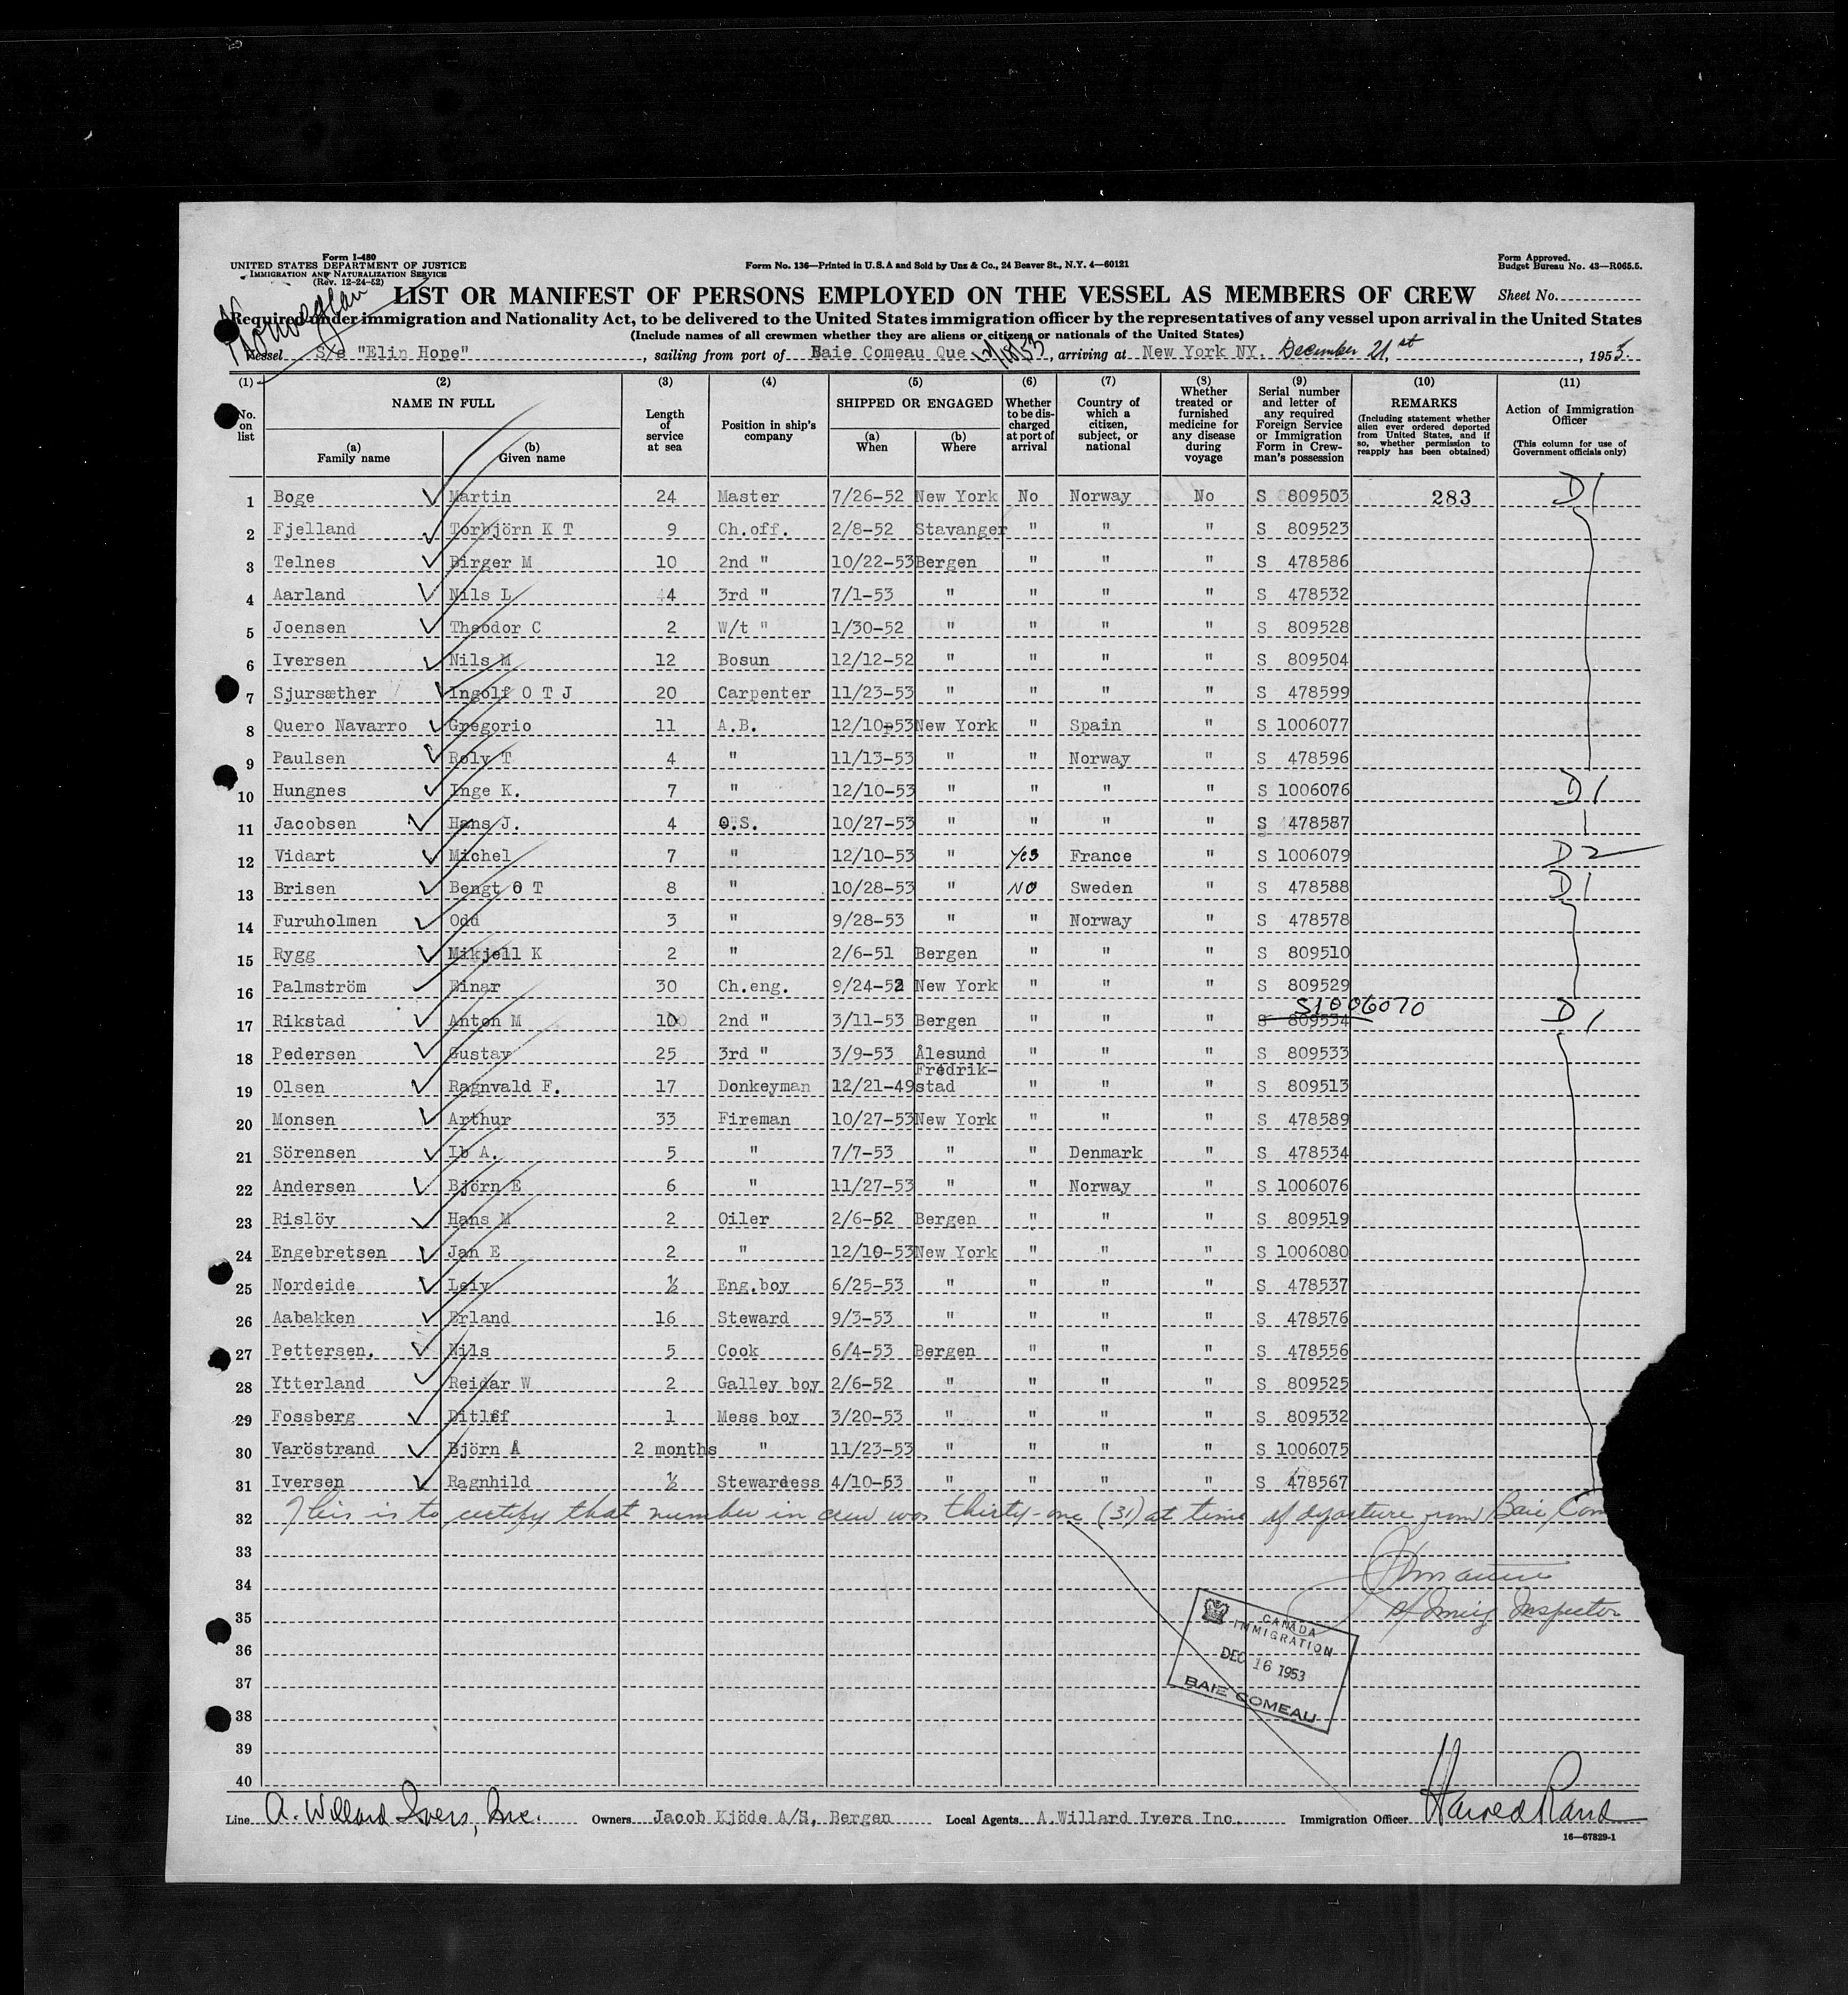 Form I-480
UNITED STATES DEPARTMENT OF JUSTICE
IMMIGRATION AND NATURALIZATION SERVICE
(Rev. 12-24-52)
Form No. 136—Printed in U.S.A and Sold by Unz & Co., 24 Beaver St., N.Y. 4—60121
Form Approved.
Budget Bureau No. 43—R065.5.
Norwegian
LIST OR MANIFEST OF PERSONS EMPLOYED ON THE VESSEL AS MEMBERS OF CREW
Sheet No.
Required under immigration and Nationality Act, to be delivered to the United States immigration officer by the representatives of any vessel upon arrival in the United States
(Include names of all crewmen whether they are aliens or citizens or nationals of the United States)
Vessel S/s "Elin Hope", sailing from port of Baie Comeau Que 12/18/53, arriving at New York NY. December 21,st, 1953.
(1) (2) (3) (4) (5) (6) (7) (8) (9) (10) (11)
No. on list
NAME IN FULL
(a) Family name
(b) Given name
Length of service at sea
Position in ship's company
SHIPPED OR ENGAGED
(a) When
(b) Where
Whether to be discharged at port of arrival
Country of which a citizen, subject, or national
Whether treated or furnished medicine for any disease during voyage
Serial number and letter of any required Foreign Service or Immigration Form in Crewman's possession
REMARKS
(Including statement whether alien ever ordered deported from United States, and if so, whether permission to reapply has been obtained)
Action of Immigration Officer
(This column for use of Government officials only)
1 Boge Martin 24 Master 7/26-52 New York No Norway No S 809503 283 D1
2 Fjelland Torbjörn K T 9 Ch.off. 2/8-52 Stavanger " " " S 809523
3 Telnes Birger M 10 2nd " 10/22-53 Bergen " " " S 478586
4 Aarland Nils L 4 3rd " 7/1-53 " " " " S 478532
5 Joensen Theodor C 2 W/t " 1/30-52 " " " " S 809528
6 Iversen Nils M 12 Bosun 12/12-52 " " " " S 809504
7 Sjursæther Ingolf O T J 20 Carpenter 11/23-53 " " " " S 478599
8 Quero Navarro Gregorio 11 A.B. 12/10-53 New York " Spain " S 1006077
9 Paulsen Roly T 4 " 11/13-53 " " Norway " S 478596
10 Hungnes Inge K. 7 " 12/10-53 " " " " S 1006076 D1
11 Jacobsen Hans J. 4 O.S. 10/27-53 " " " " S 478587 1
12 Vidart Michel 7 " 12/10-53 " Yes France " S 1006079 D2
13 Brisen Bengt O T 8 " 10/28-53 " NO Sweden " S 478588 D1
14 Furuholmen Odd 3 " 9/28-53 " " Norway " S 478578
15 Rygg Mikjell K 2 " 2/6-51 Bergen " " " S 809510
16 Palmström Einar 30 Ch.eng. 9/24-52 New York " " " S 809529
S1006070
17 Rikstad Anton M 10 2nd " 3/11-53 Bergen " " " S 809534 D1
18 Pedersen Gustav 25 3rd " 3/9-53 Ålesund " " " S 809533
19 Olsen Ragnvald F. 17 Donkeyman 12/21-49 Fredrik-stad " " " S 809513
20 Monsen Arthur 33 Fireman 10/27-53 New York " " " S 478589
21 Sörensen Ib A. 5 " 7/7-53 " " Denmark " S 478534
22 Andersen Björn E 6 " 11/27-53 " " Norway " S 1006076
23 Rislöv Hans M 2 Oiler 2/6-52 Bergen " " " S 809519
24 Engebretsen Jan E 2 " 12/10-53 New York " " " S 1006080
25 Nordeide Leiv ½ Eng.boy 6/25-53 " " " " S 478537
26 Aabakken Erland 16 Steward 9/3-53 " " " " S 478576
27 Pettersen. Nils 5 Cook 6/4-53 Bergen " " " S 478556
28 Ytterland Reidar W 2 Galley boy 2/6-52 " " " " S 809525
29 Fossberg Ditlef 1 Mess boy 3/20-53 " " " " S 809532
30 Varöstrand Björn Å 2 months " 11/23-53 " " " " S 1006075
31 Iversen Ragnhild ½ Stewardess 4/10-53 " " " " S 478567
32 This is to certify that number in crew was thirty-one (31) at time of departure from Baie Com
33
34
35 Inspector
36
37
38
39
40
CANADA
IMMIGRATION
DEC 16 1953
BAIE COMEAU
Line A. Willard Ivers, Inc. Owners Jacob Kjöde A/S, Bergen Local Agents A.Willard Ivers Inc. Immigration Officer Harold Rand
16—67829-1